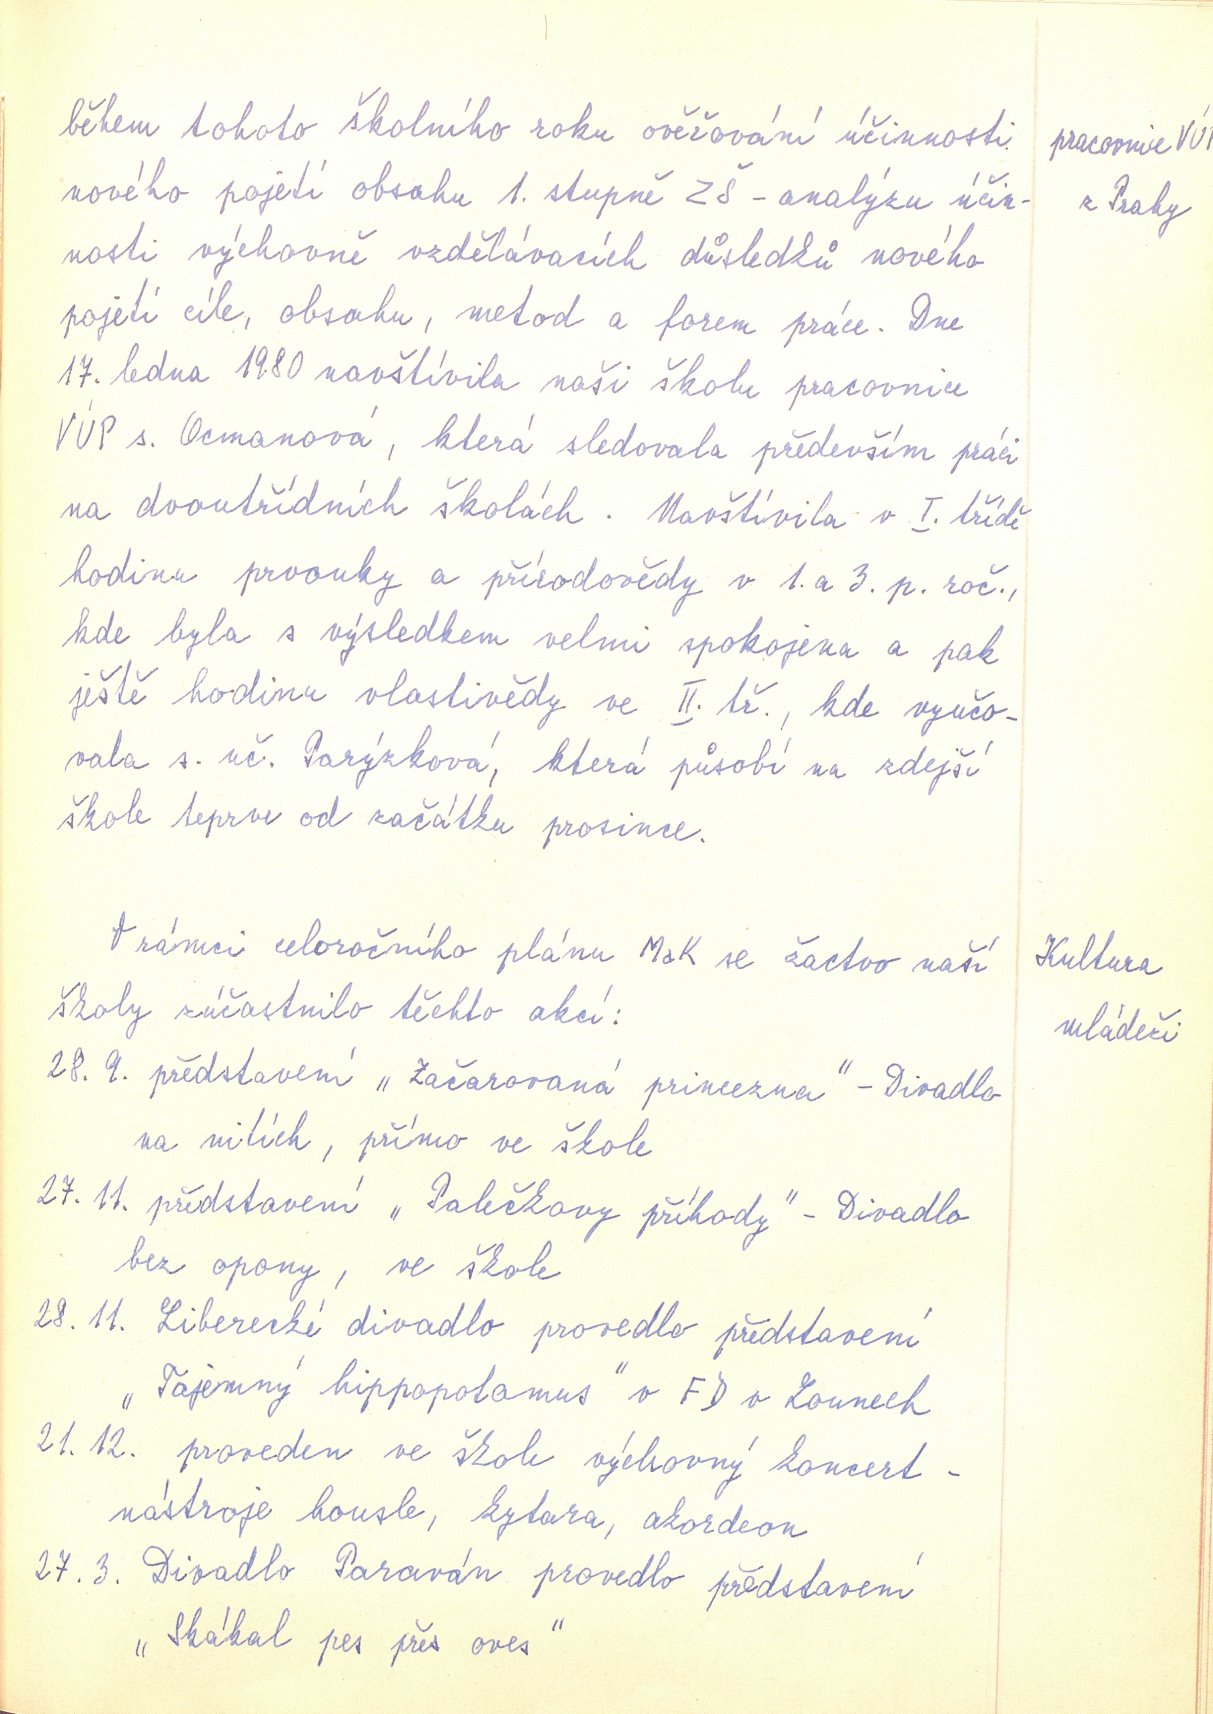 během tohoto školního roku ověřování účinnosti
nového pojetí obsahu 1. stupně ZŠ - analýzu účin-
nosti výchovně vzdělávacích důsledků nového
pojetí cíle, obsahu, metod a forem práce. Dne
17. ledna 1980 navštívila naši školu pracovnice
VÚP s. Ocmanová, která sledovala především práci
na dvoutřídních školách. Navštívila v I. třídě
hodinu prvouky a přírodovědy v 1. a 3. p. roč.,
kde byla s výsledkem velmi spokojena a pak
ještě hodinu vlastivědy ve II. tř., kde vyučo-
vala s. uč. Parýzková, která působí na zdejší
škole teprve od začátku prosince.
pracovnice VÚP
z Prahy
V rámci celoročního plánu MsK se žactvo naší
školy zúčastnilo těchto akcí:
28. 9. představení „Začarovaná princezna" - Divadlo
na nitích, přímo ve škole
27. 11. představení „Palečkovy příhody" - Divadlo
bez opony, ve škole
28. 11. Liberecké divadlo provedlo představení
„Tajemný hippopotamus" v FD v Lounech
21. 12. proveden ve škole výchovný koncert -
nástroje housle, kytara, akordeon
27. 3. Divadlo Paraván provedlo představení
„Skákal pes přes oves"
Kultura
mládeži